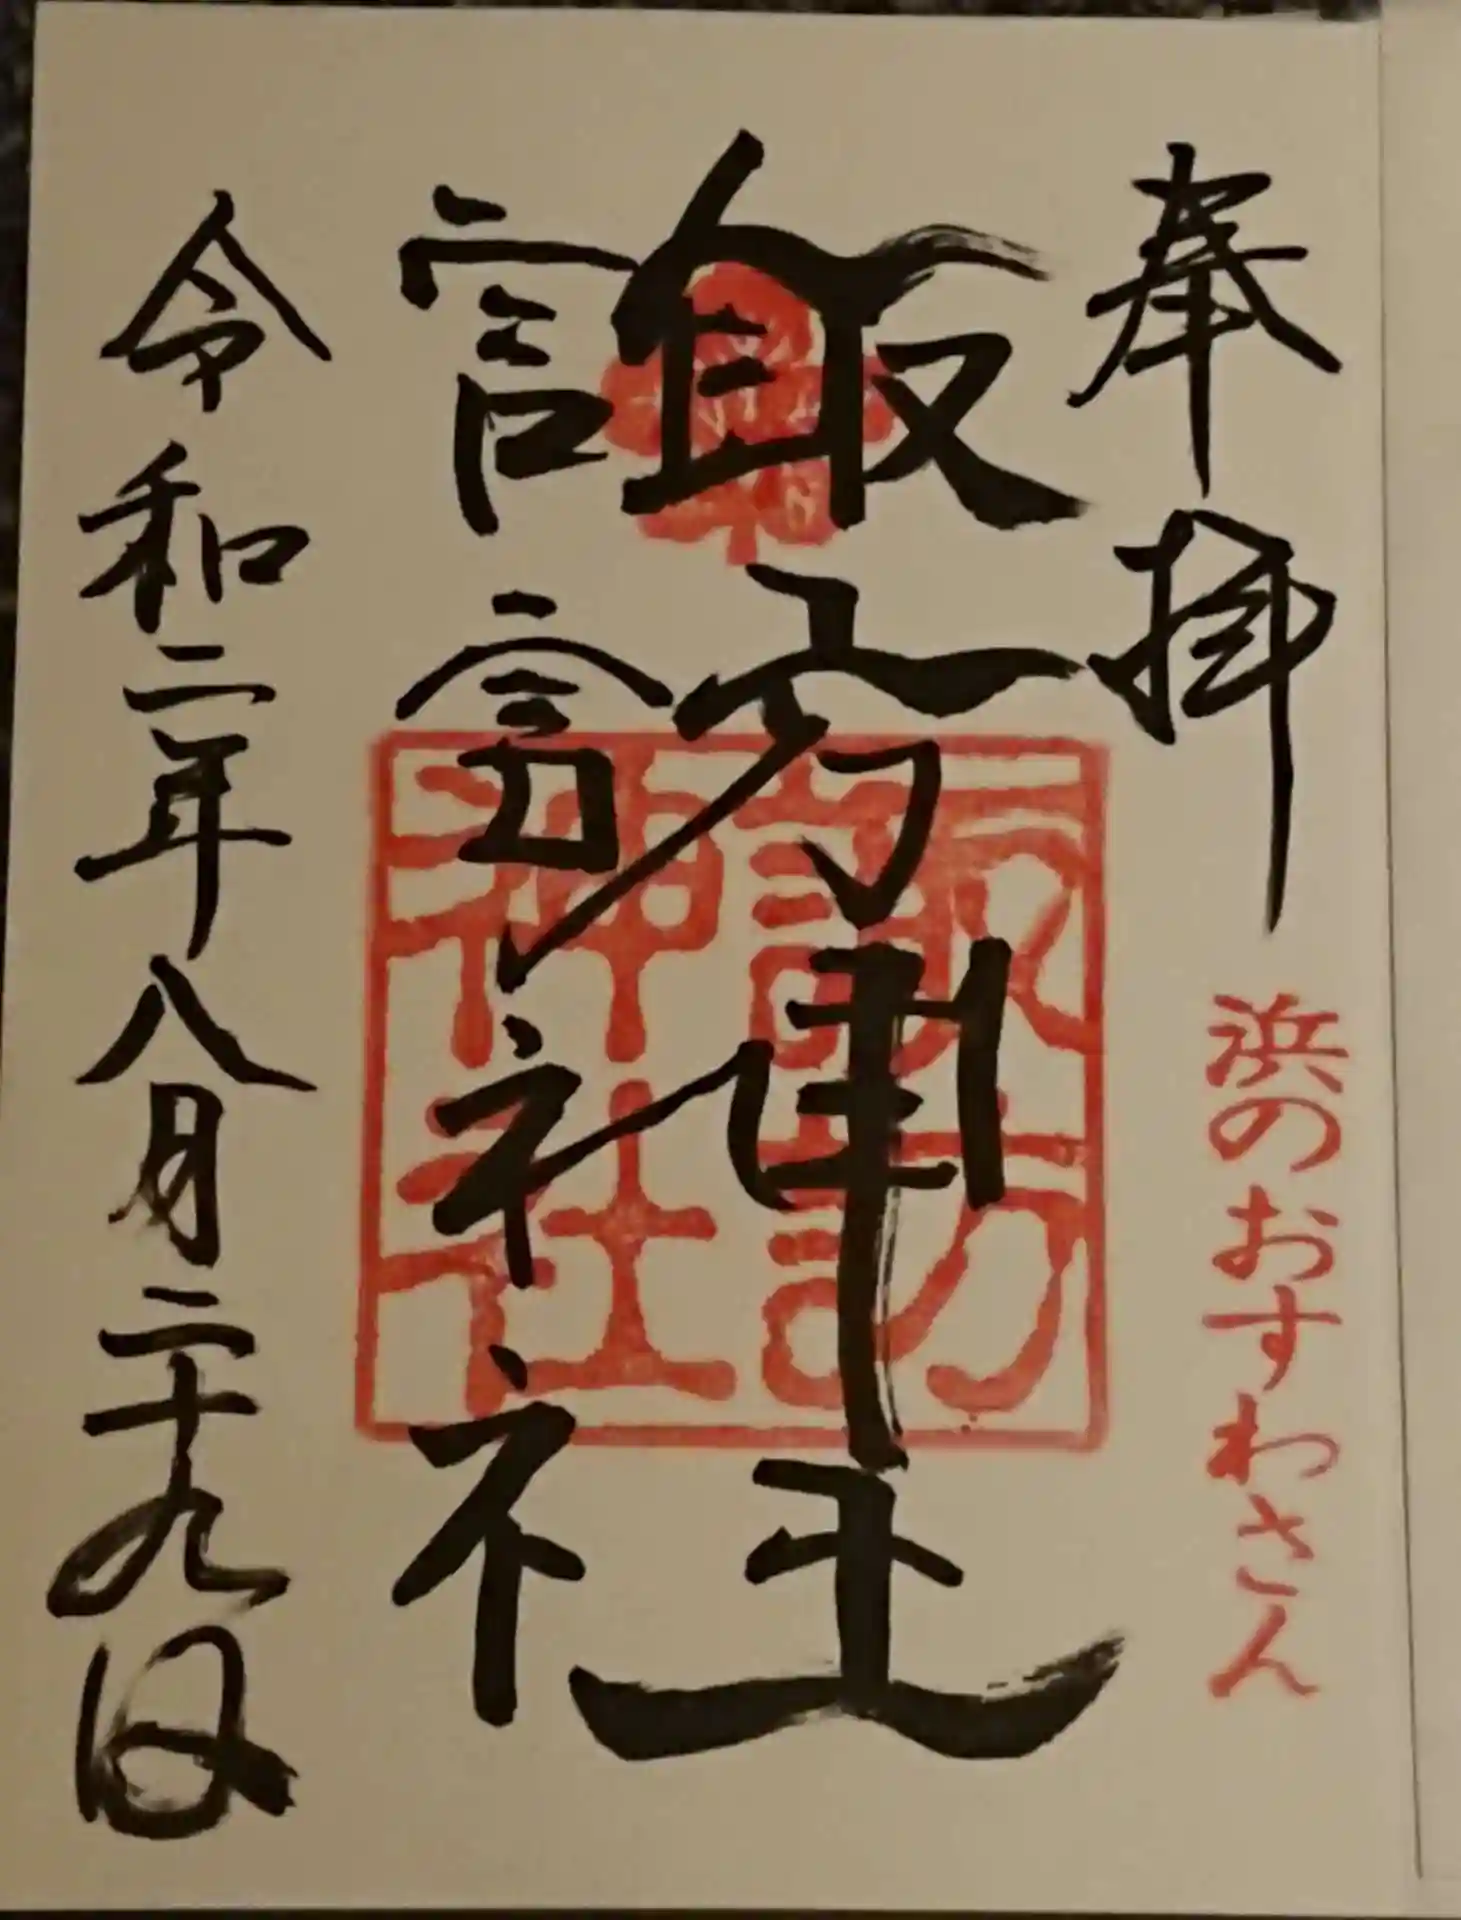 奉拝
浜のおすわさん
諏訪神社
諏訪神社
令和二年八月二十九日